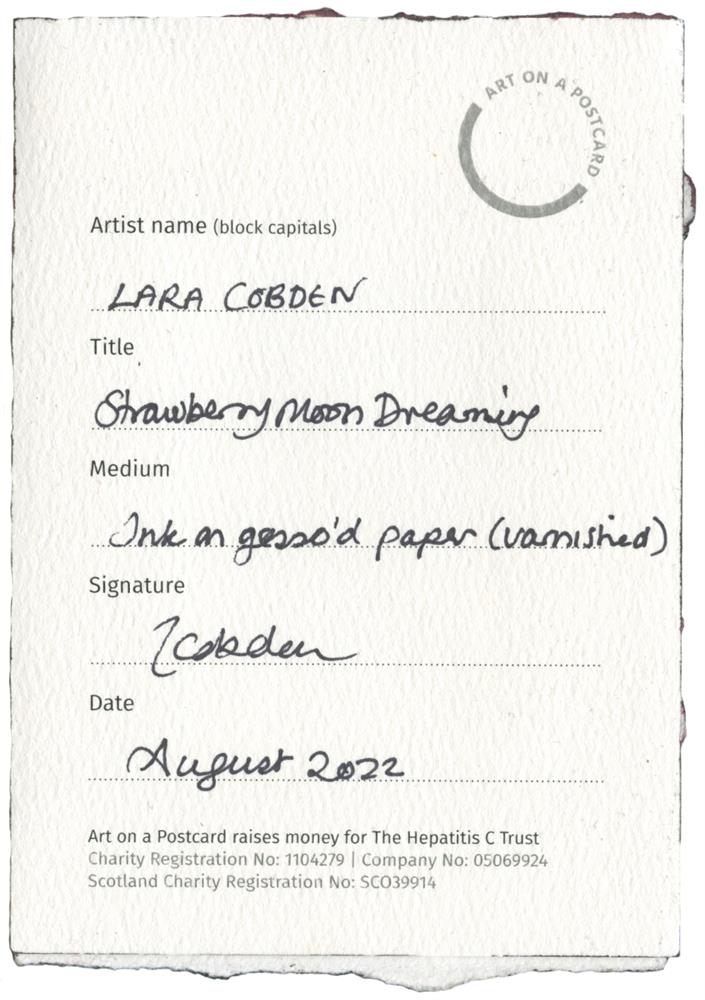 ART ON A POSTCARD
Artist name (block capitals)
LARA COBDEN
Title
Strawberry Moon Dreaming
Medium
Ink on gesso'd paper (varnished)
Signature
LCobden
Date
August 2022
Art on a Postcard raises money for The Hepatitis C Trust
Charity Registration No: 1104279 | Company No: 05069924
Scotland Charity Registration No: SCO39914